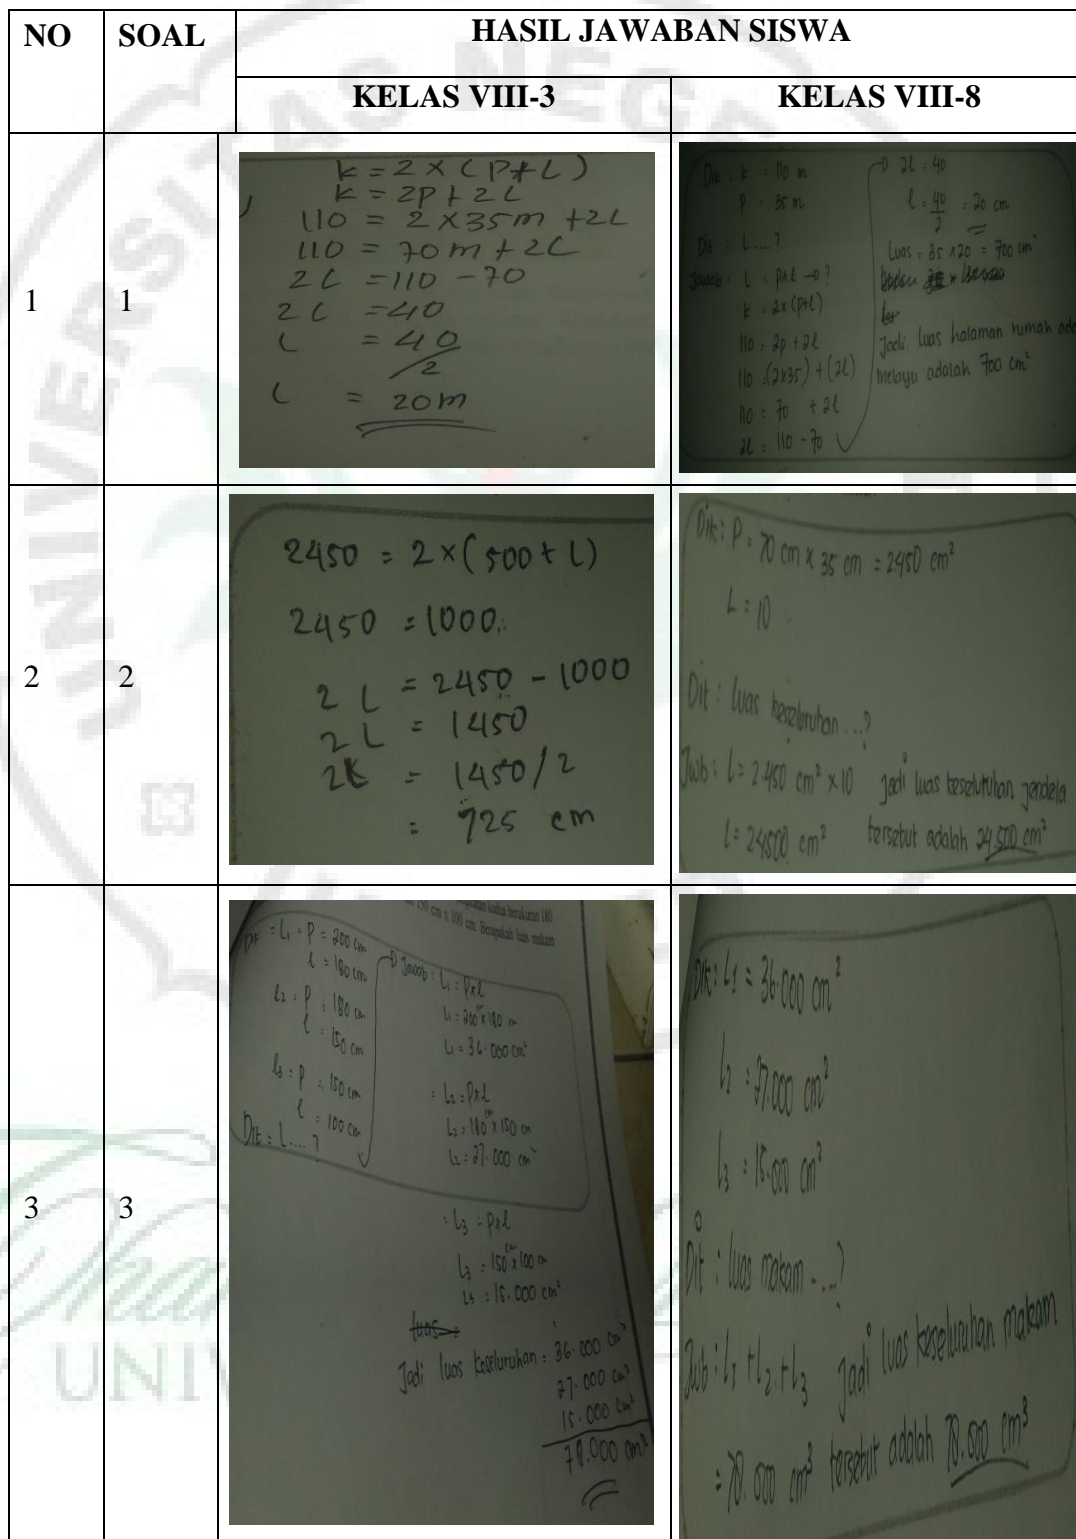 NO SOAL HASIL JAWABAN SISWA
KELAS VIII-3 KELAS VIII-8
1 1
k = 2 × (P+L)
k = 2P + 2L
110 = 2 × 35m + 2L
110 = 70m + 2L
2L = 110 - 70
2L = 40
L = 40/2
L = 20m
Dik : k : 110 m
P : 35 m
Dit : L ....?
Jawab : L = p×l → ?
k = 2×(p+l)
110 : 2p + 2l
110 : (2×35) + (2l)
110 : 70 + 2l
2l : 110 - 70
2l : 40
l = 40/2 = 20 cm
Luas = 35 × 20 = 700 cm²
Jadi luas halaman rumah ada
melayu adalah 700 cm²
2 2
2450 = 2×(500 + L)
2450 = 1000
2L = 2450 - 1000
2L = 1450
2K = 1450/2
= 725 cm
Dik : P = 70 cm × 35 cm = 2450 cm²
L = 10
Dit : luas keseluruhan ...?
Jwb : L = 2.450 cm² × 10 Jadi luas keseluruhan jendela
L = 24500 cm² tersebut adalah 24.500 cm²
3 3
kedua berukuran 180
150 cm x 100 cm. Berapakah luas makam
Dik = L₁ = P = 200 cm
l = 180 cm
L₂ = P = 180 cm
l = 150 cm
L₃ = P = 150 cm
l = 100 cm
Dit = L .... ?
Jawab : L₁ = P×l
L₁ = 200 cm × 180 cm
L₁ = 36.000 cm²
= L₂ = P×l
L₂ = 180 cm × 150 cm
L₂ = 27.000 cm²
= L₃ = P×l
L₃ = 150 cm × 100 cm
L₃ = 15.000 cm²
luas =
Jadi luas keseluruhan = 36.000 cm²
27.000 cm²
15.000 cm²
78.000 cm²
Dik : L₁ = 36.000 cm²
L₂ = 27.000 cm²
L₃ = 15.000 cm²
Dit : luas makam ...?
Jwb : L₁ + L₂ + L₃ Jadi luas keseluruhan makam
= 78.000 cm³ tersebut adalah 78.000 cm³
UNIVERSITAS NEGE
UNI